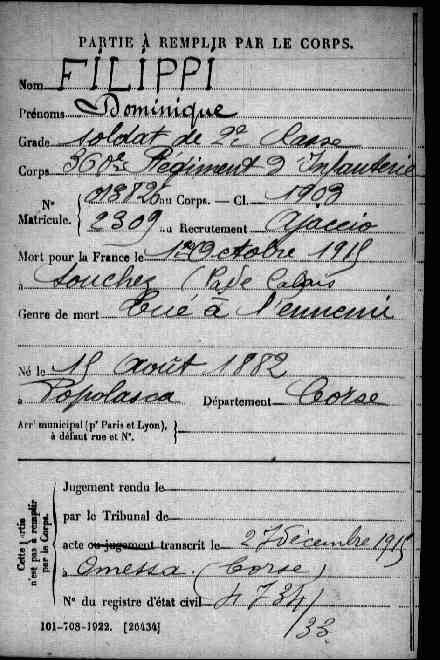 PARTIE À REMPLIR PAR LE CORPS.
Nom FILIPPI
Prénoms Dominique
Grade soldat de 2e Classe
Corps 360e Régiment d'Infanterie
N° Matricule. { 01382 au Corps. — Cl. 1903
2309 au Recrutement Ajaccio
Mort pour la France le 1er Octobre 1915
à Souchez (Pas de Calais
Genre de mort Tué à l'ennemi
Né le 15 Août 1882
à Popolasca Département Corse
Arrt municipal (pr Paris et Lyon), à défaut rue et N°. }
Cette partie n'est pas à remplir par le Corps.
Jugement rendu le
par le Tribunal de
acte ou jugement transcrit le 27 décembre 1915
à Omessa (Corse)
N° du registre d'état civil 734/33
101-708-1922. [26434]